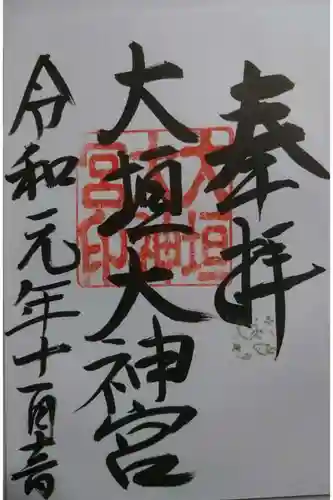 奉拝
大垣大神宮
大垣大神宮印
令和元年十一月三日